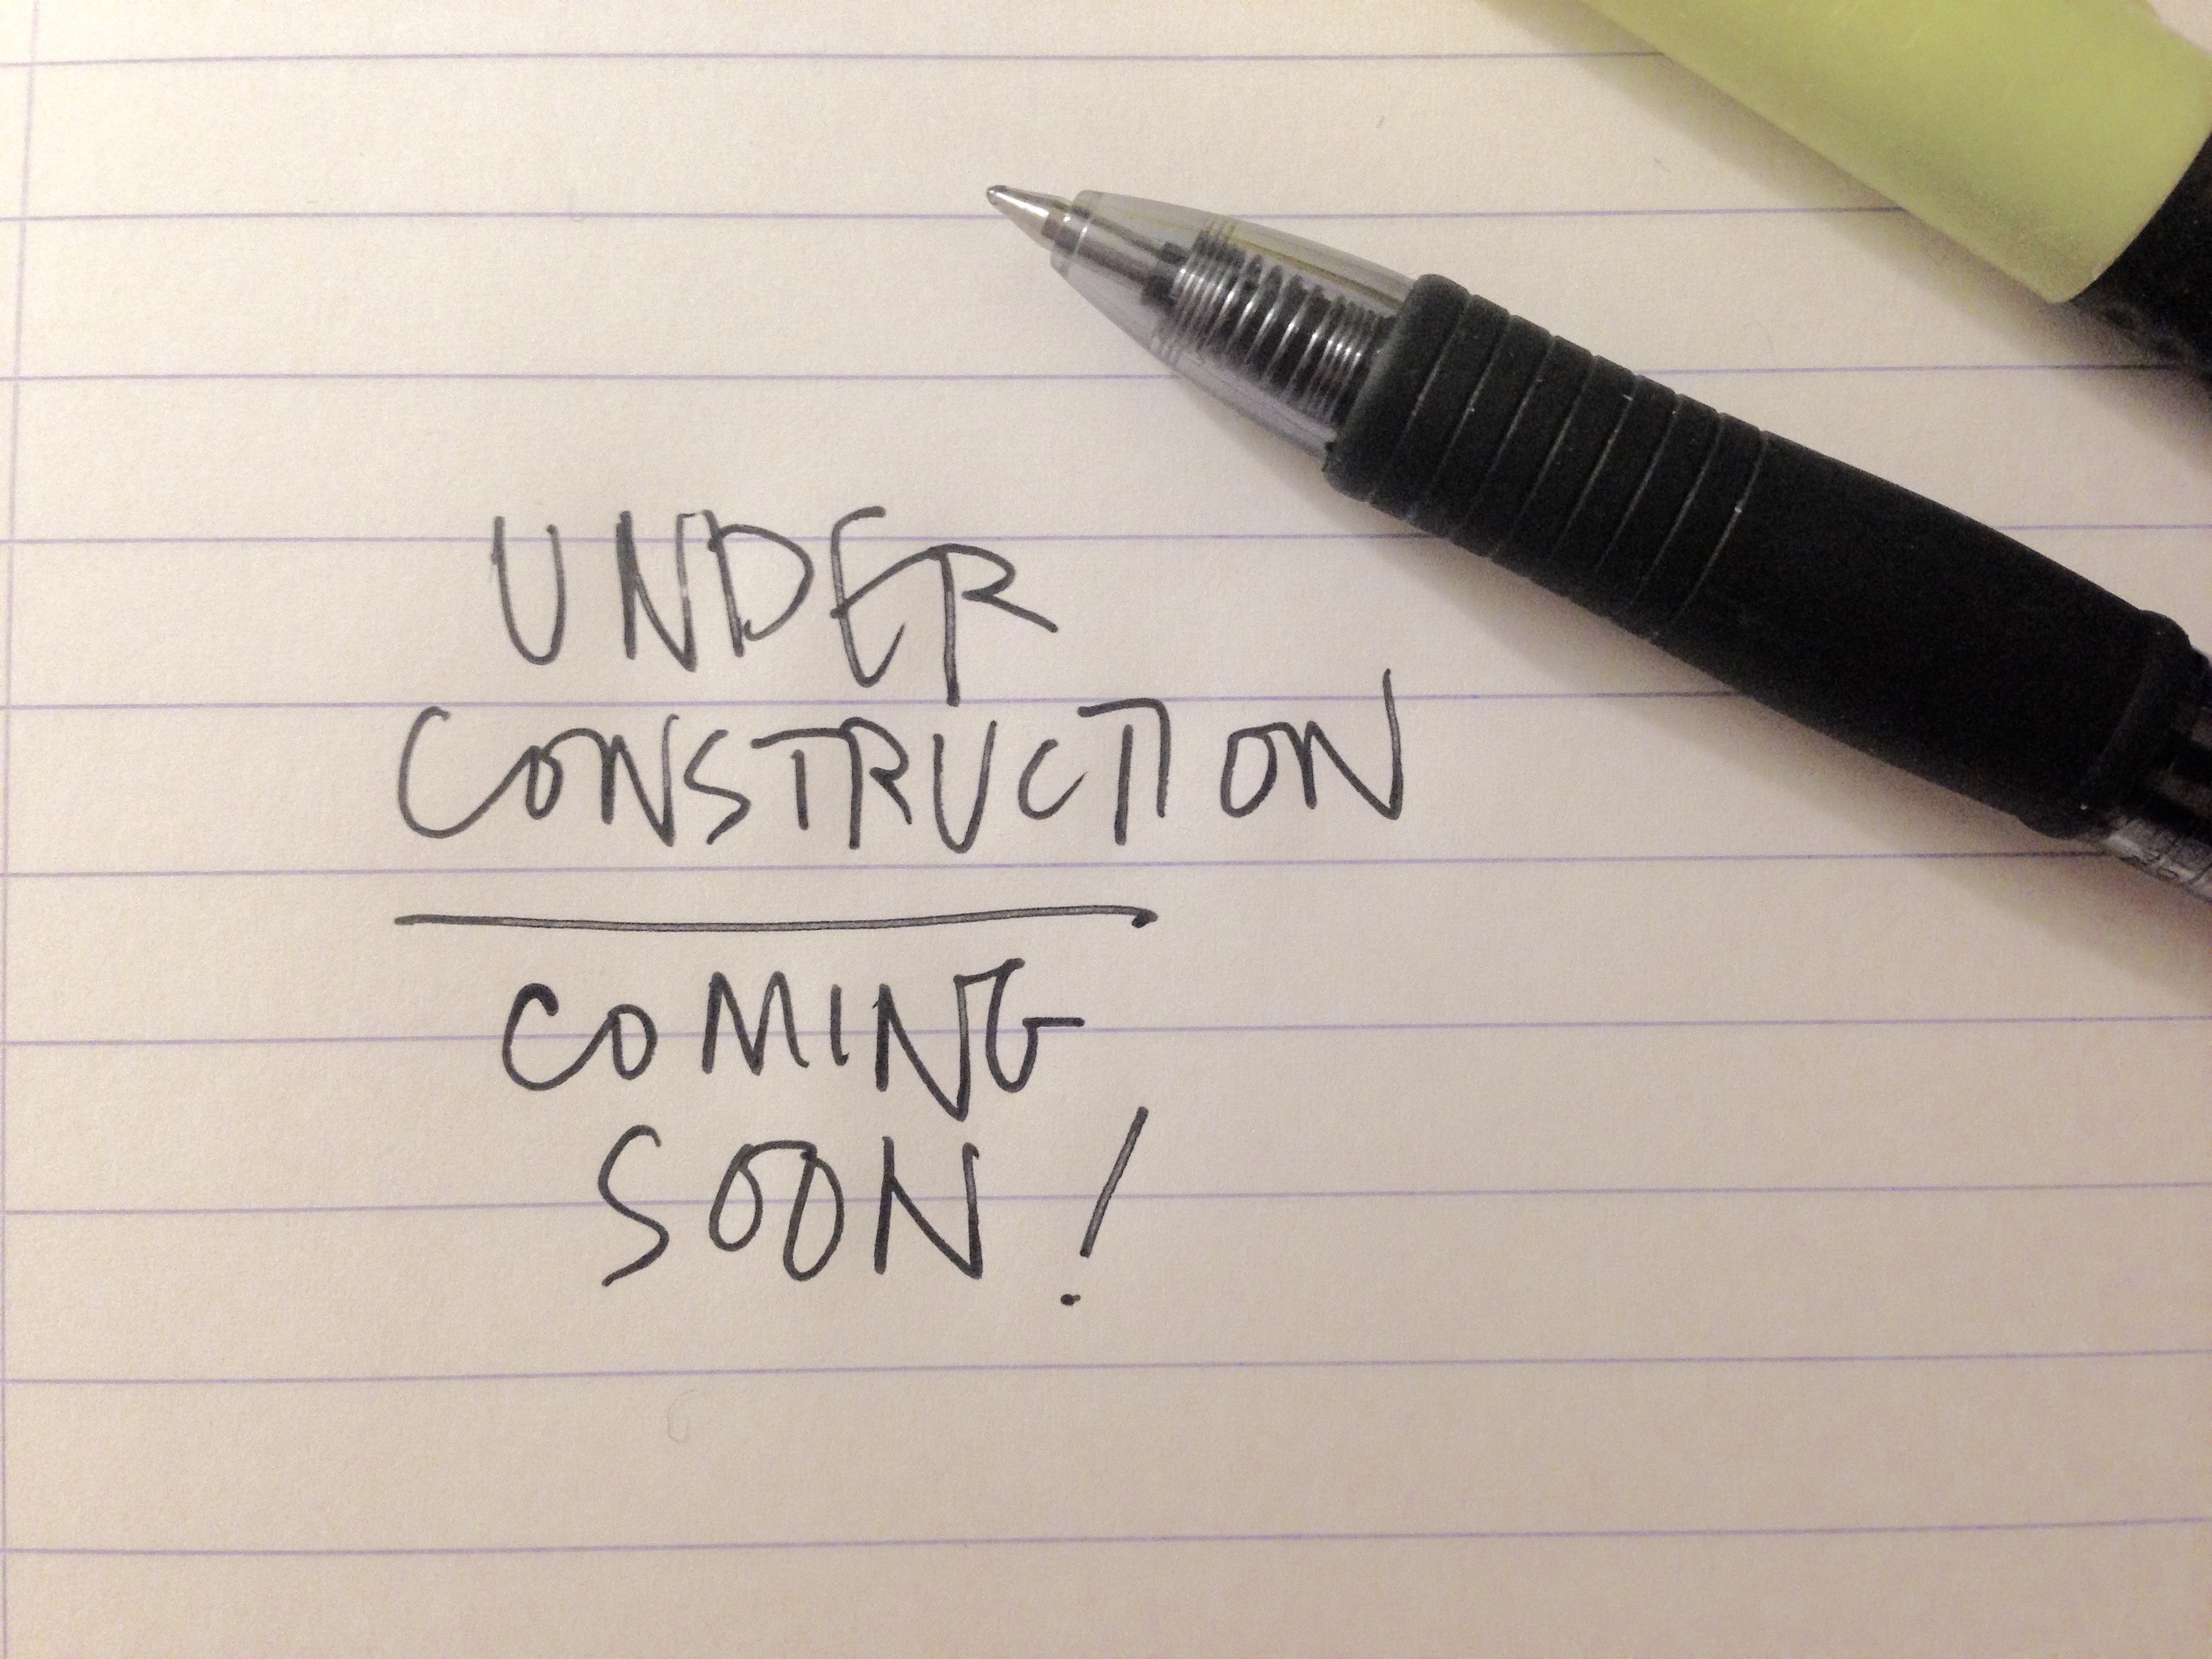 UNDER
CONSTRUCTION
COMING
SOON!